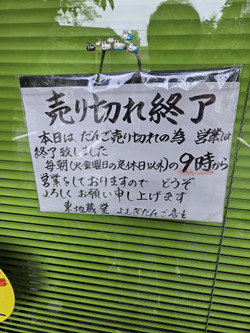 売り切れ終了
本日は、だんご売り切れの為 営業は
終了致しました
毎朝(火・金曜日の定休日以外)の9時から
営業をしておりますので どうぞ
よろしくお願い申し上げます
東地蔵業 よもぎだんご店主